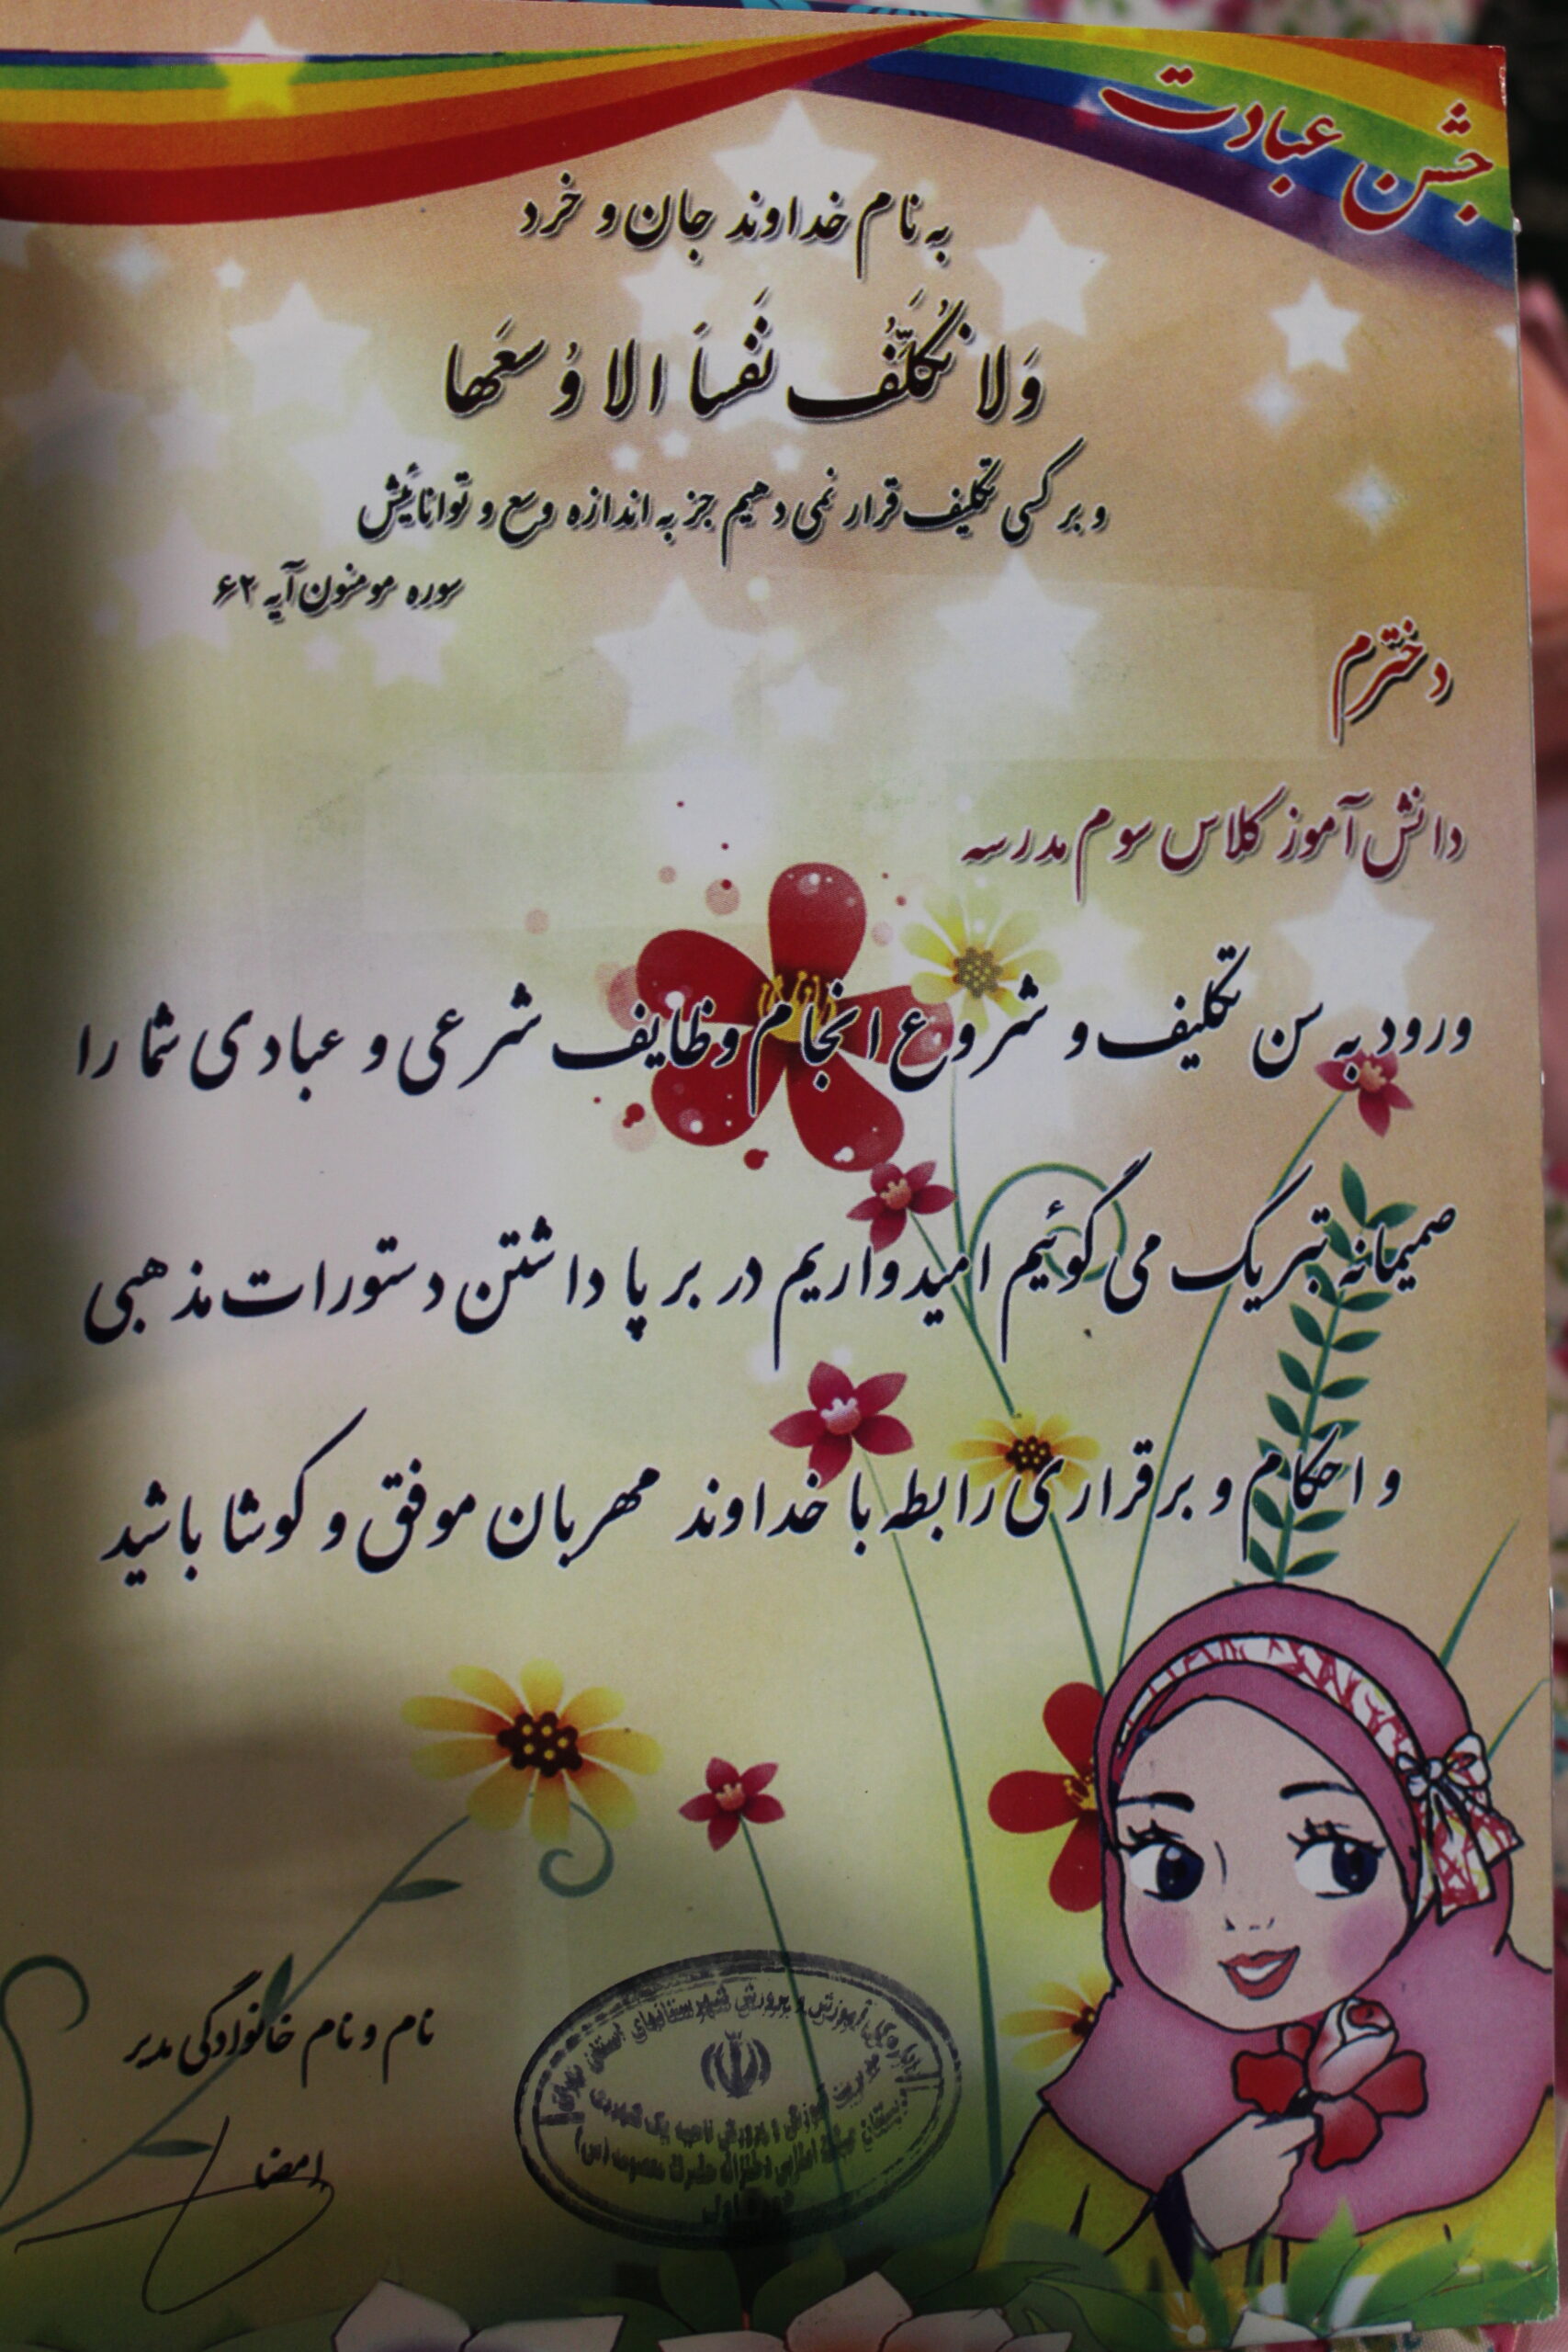 جشن عبادت
به نام خداوند جان و خرد
وَلا نُكَلِّفُ نَفساَ الا وُسعَها
و بر کسی تکلیف قرار نمی دهیم جز به اندازه وسع و توانائیش
سوره مومنون آیه ۶۲
دخترم
دانش آموز کلاس سوم مدرسه
ورود به سن تکلیف و شروع انجام وظایف شرعی و عبادی شما را
صمیمانه تبریک می گوئیم امیدواریم در بر پا داشتن دستورات مذهبی
و احکام و برقراری رابطه با خداوند مهربان موفق و کوشا باشید
نام و نام خانوادگی مدیر
امضا
اداره کل آموزش و پرورش شهرستانهای استان تهران
مدیریت آموزش و پرورش ناحیه یک شهرری
دخترانه حضرت معصومه (س)